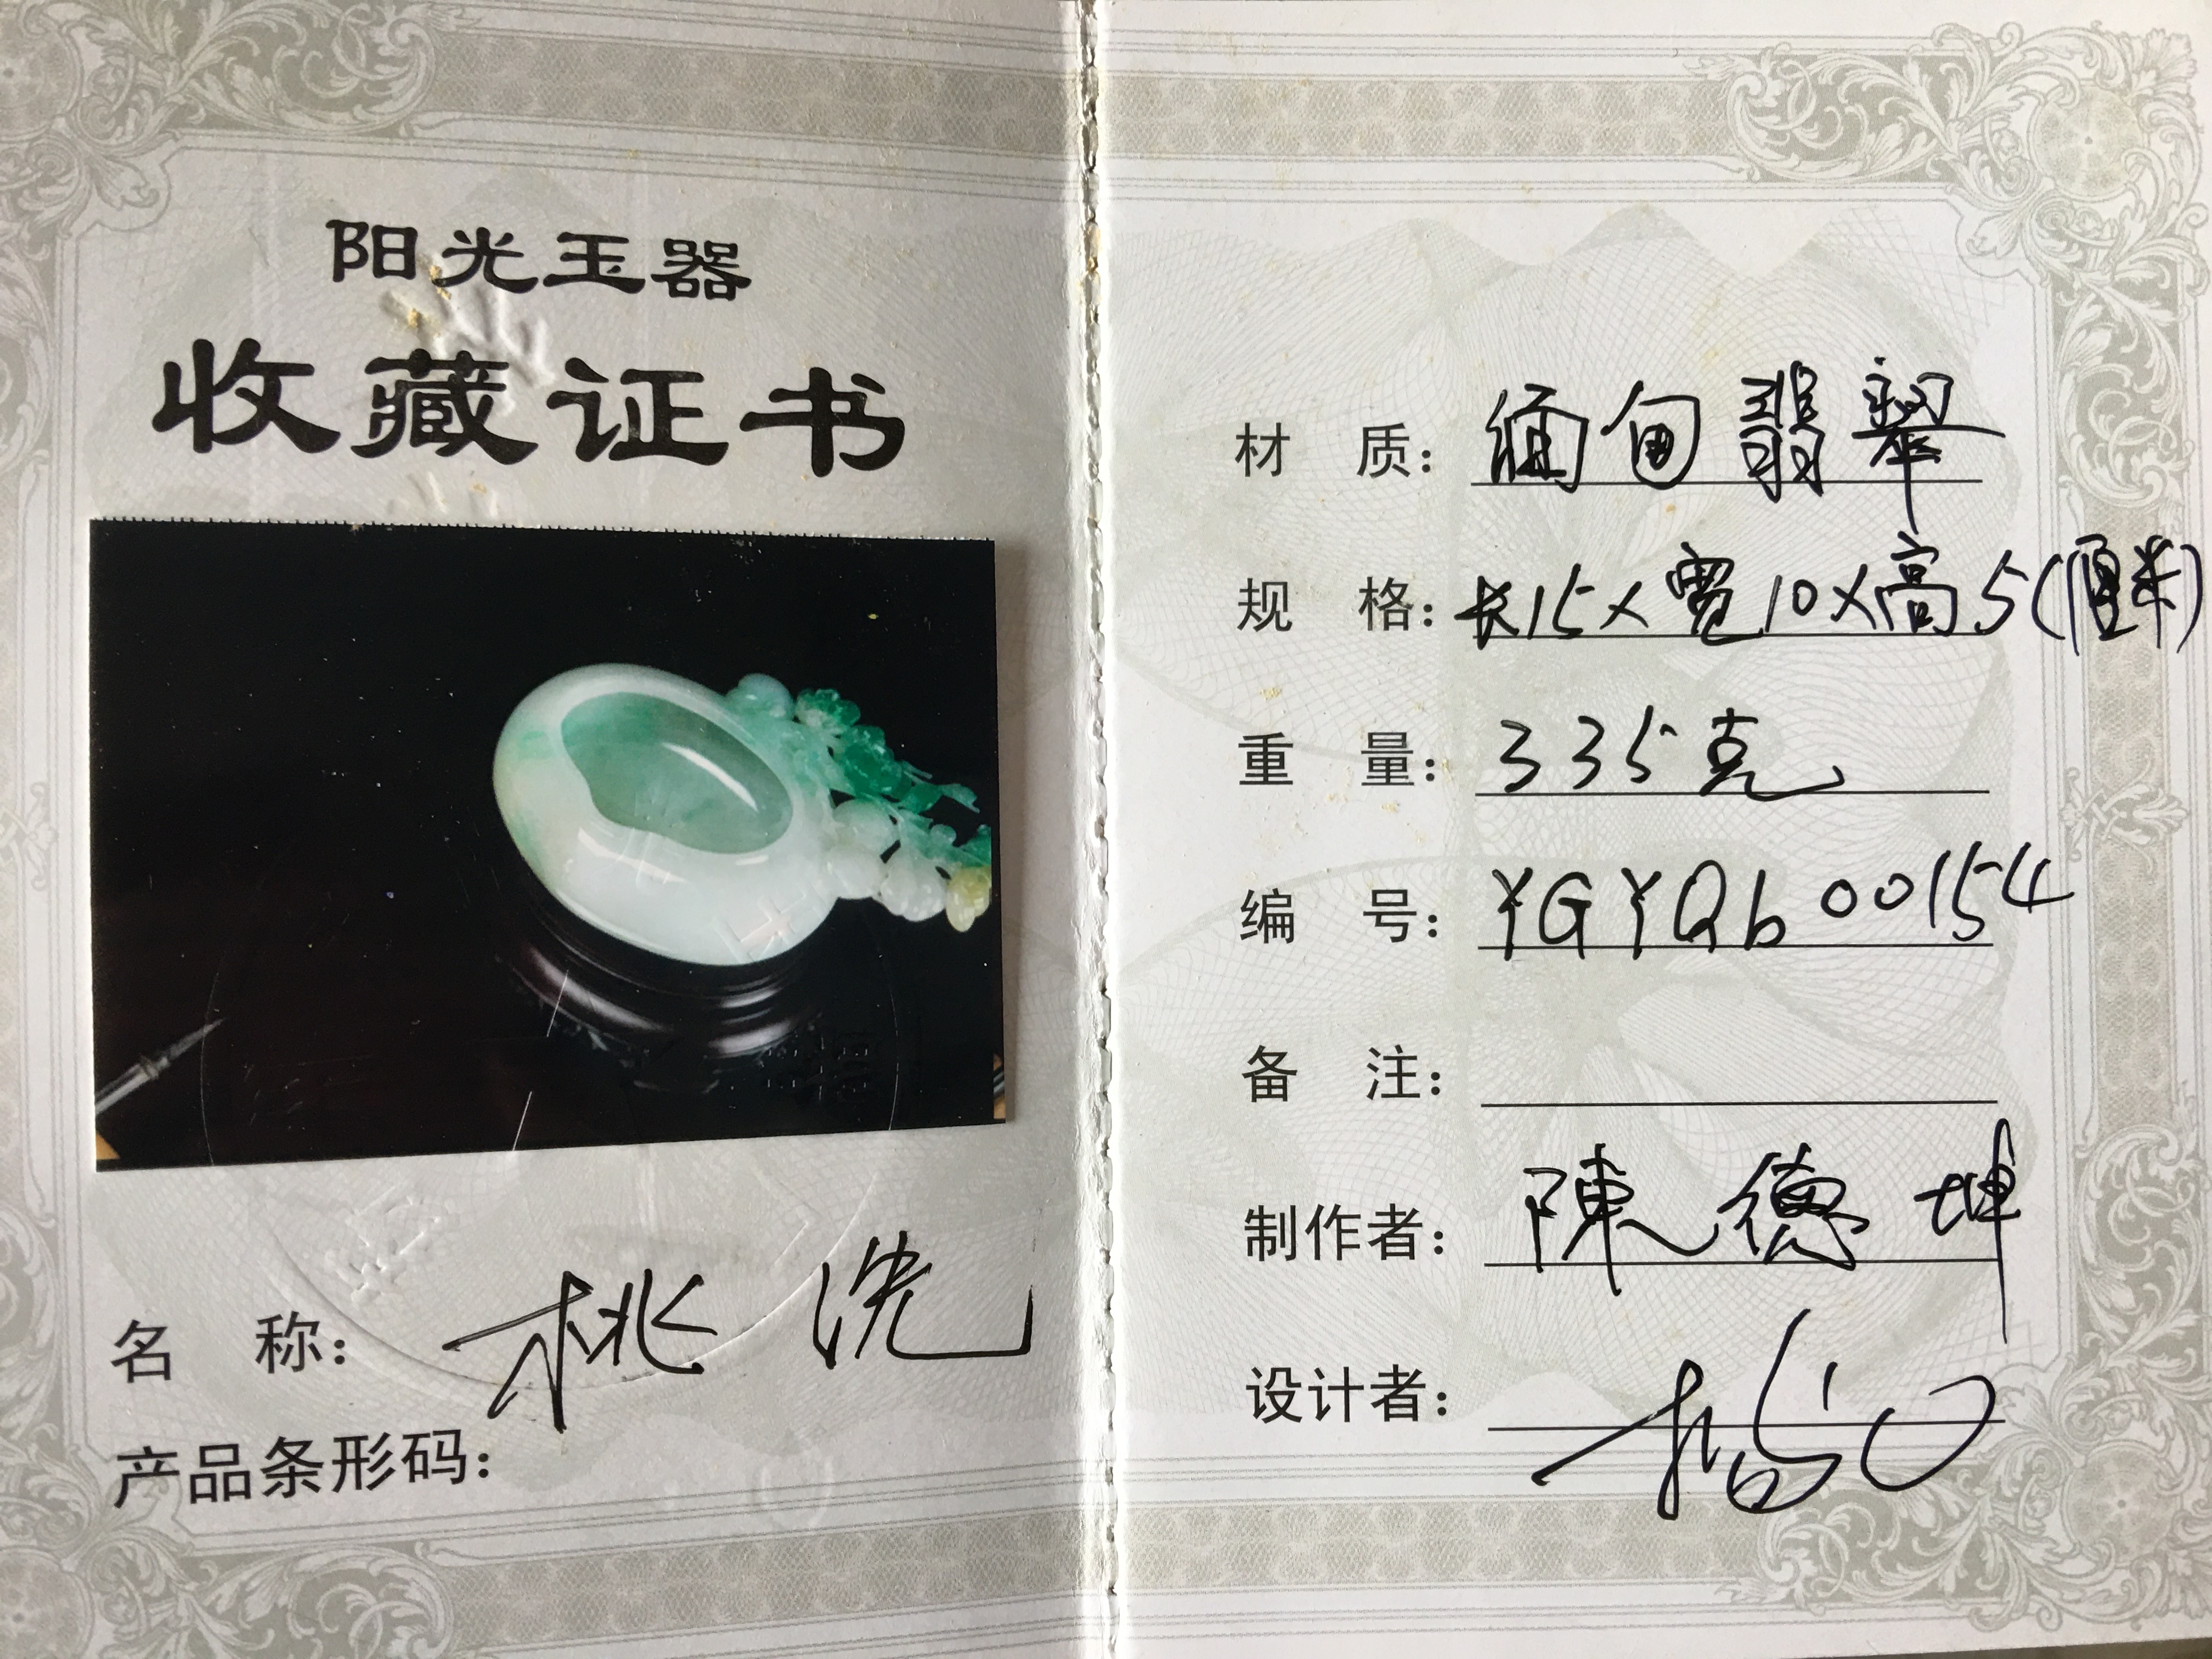 阳光玉器
收藏证书
名 称: 桃洗
产品条形码:
材 质: 缅甸翡翠
规 格: 长15×宽10×高5(厘米)
重 量: 335克
编 号: YGYQb00154
备 注:
制作者: 陳德坤
设计者: